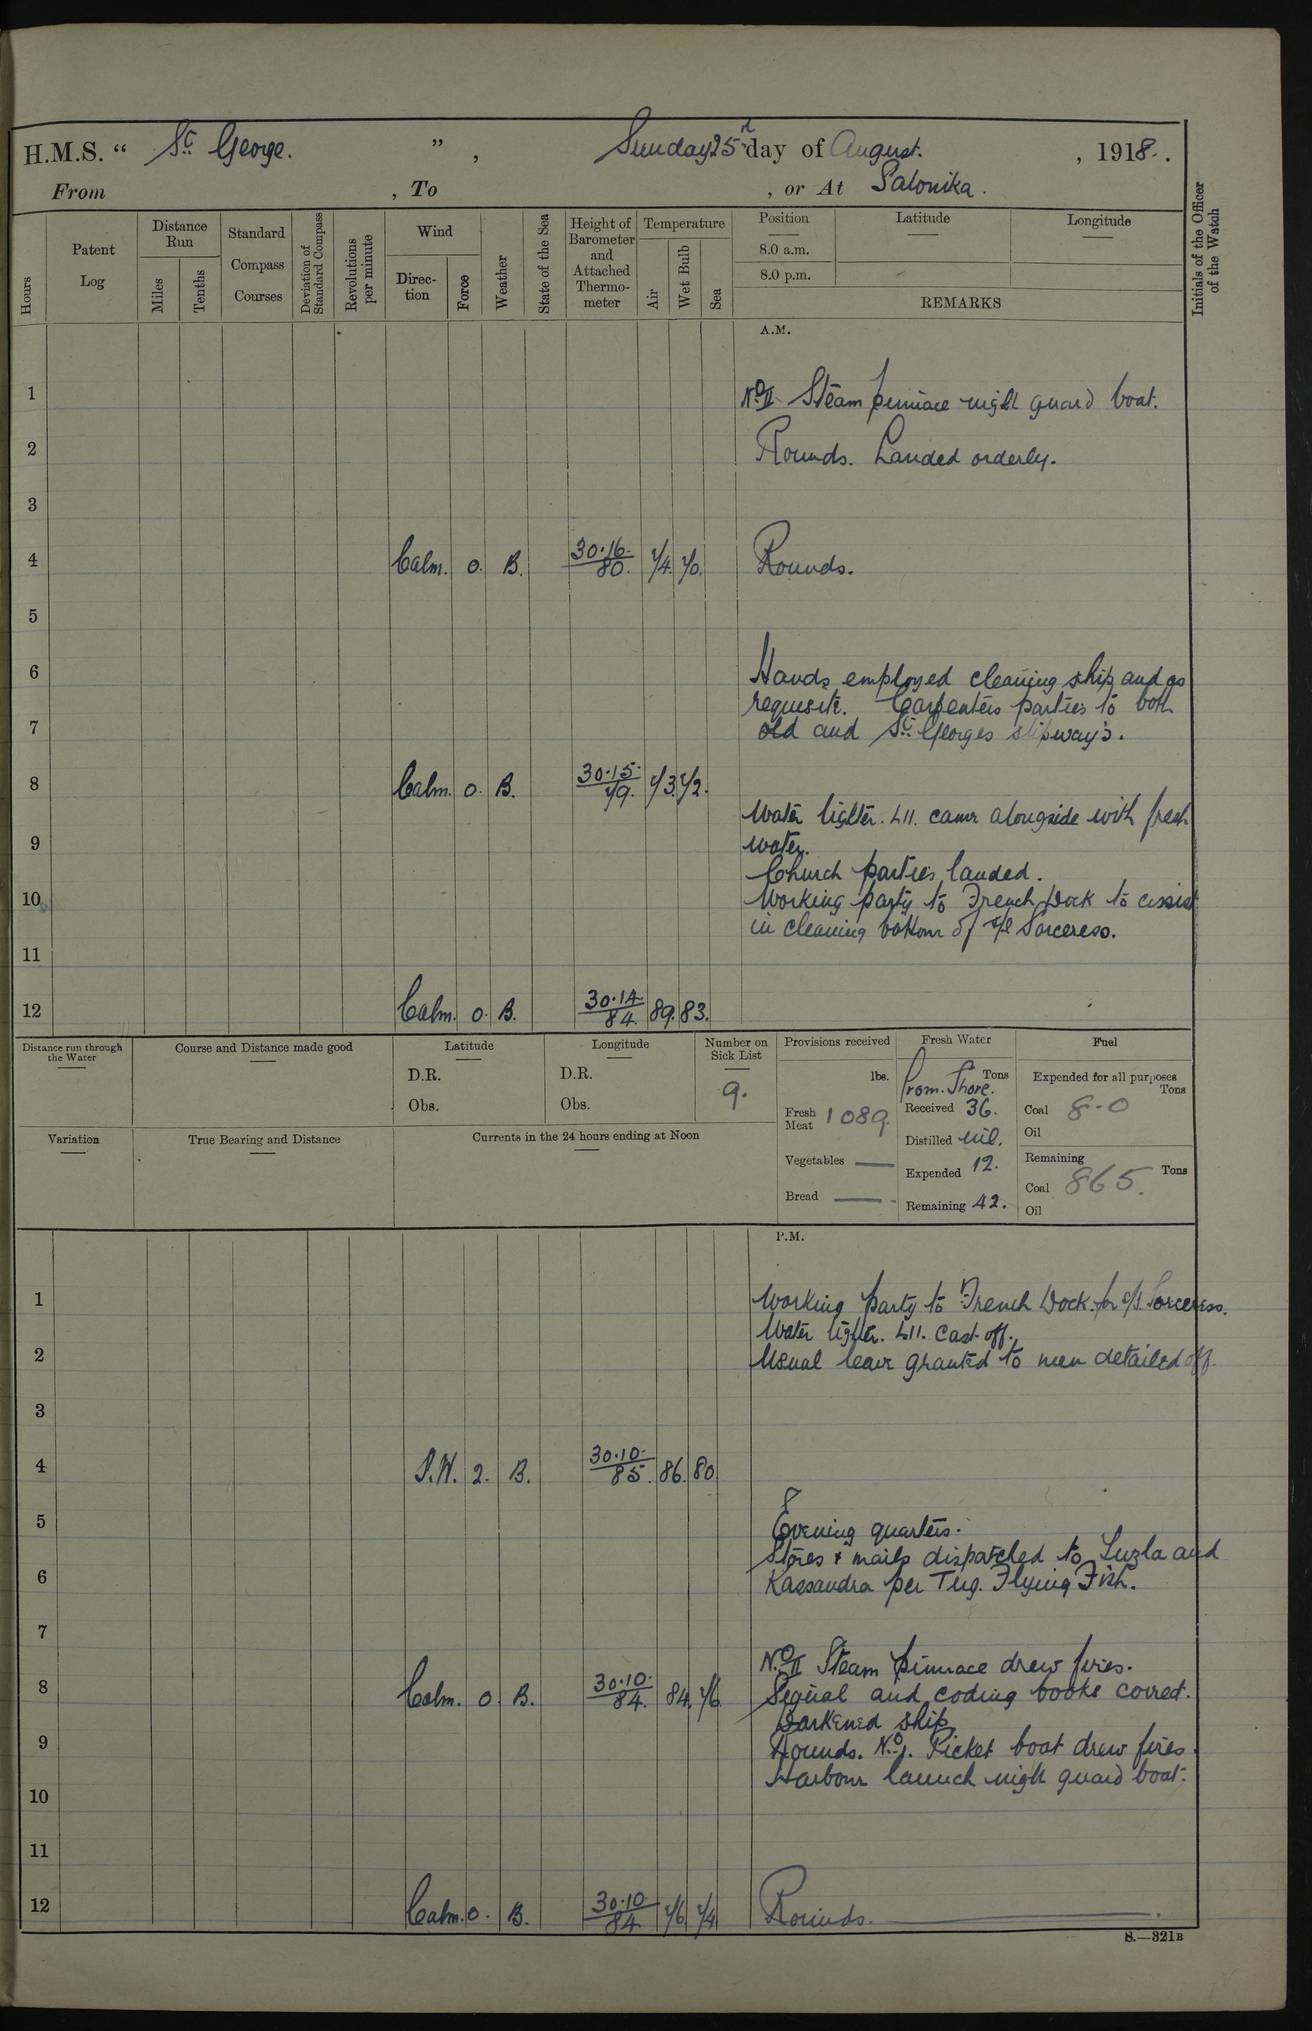 H.M.S. “ St. George. ” , Sunday 25 day of August. , 1918.
From , To , or At Salonika.
Hours
Patent Log
Distance Run
Miles
Tenths
Standard Compass Courses
Deviation of Standard Compass
Revolutions per minute
Wind
Direc-tion
Force
Weather
State of the Sea
Height of Barometer and Attached Thermo-meter
Temperature
Air
Wet Bulb
Sea
Position
8.0 a.m.
8.0 p.m.
Latitude
Longitude
REMARKS
Initials of the Officer of the Watch
A.M.
1 No II Steam pinnace night guard boat.
2 Rounds. Landed orderly.
3
4 Calm. 0. B. 30.16. 80. 74. 70. Rounds.
5
6 Hands employed cleaning ship and as
requisite. Carpenters parties to both
7 old and St. Georges slipway's.
8 Calm. 0. B. 30.15. 79. 73. 72.
Water lighter. L11. came alongside with fresh
9 water.
Church parties landed.
10 Working party to French Dock to assist
in cleaning bottom of s/s Sorceress.
11
12 Calm. 0. B. 30.14. 84. 89. 83.
Distance run through the Water
Course and Distance made good
Latitude
D.R.
Obs.
Longitude
D.R.
Obs.
Number on Sick List
9.
Provisions received
lbs.
Fresh Meat 1089.
Vegetables —
Bread —
Fresh Water
Tons
From Shore.
Received 36.
Distilled nil.
Expended 12.
Remaining 42.
Fuel
Expended for all purposes
Tons
Coal 8-0
Oil
Remaining
Tons
Coal 865.
Oil
Variation
True Bearing and Distance
Currents in the 24 hours ending at Noon
P.M.
1 Working party to French Dock. for s/s Sorceress.
Water lighter. L11. cast off.
2 Usual leave granted to men detailed off.
3
4 S.W. 2. B. 30.10. 85. 86. 80
5 Evening quarters.
Stores & mails dispatched to Tuzla and
6 Kassandra per Tug. Flying Fish.
7
No II Steam pinnace drew fires.
8 Calm. 0 B. 30.10. 84. 84. 76 Signal and coding books correct.
Darkened ship
9 Rounds. No 1. Picket boat drew fires.
Harbour launch night guard boat.
10
11
12 Calm. 0. B. 30.10 84 76 74 Rounds.
S.—321B